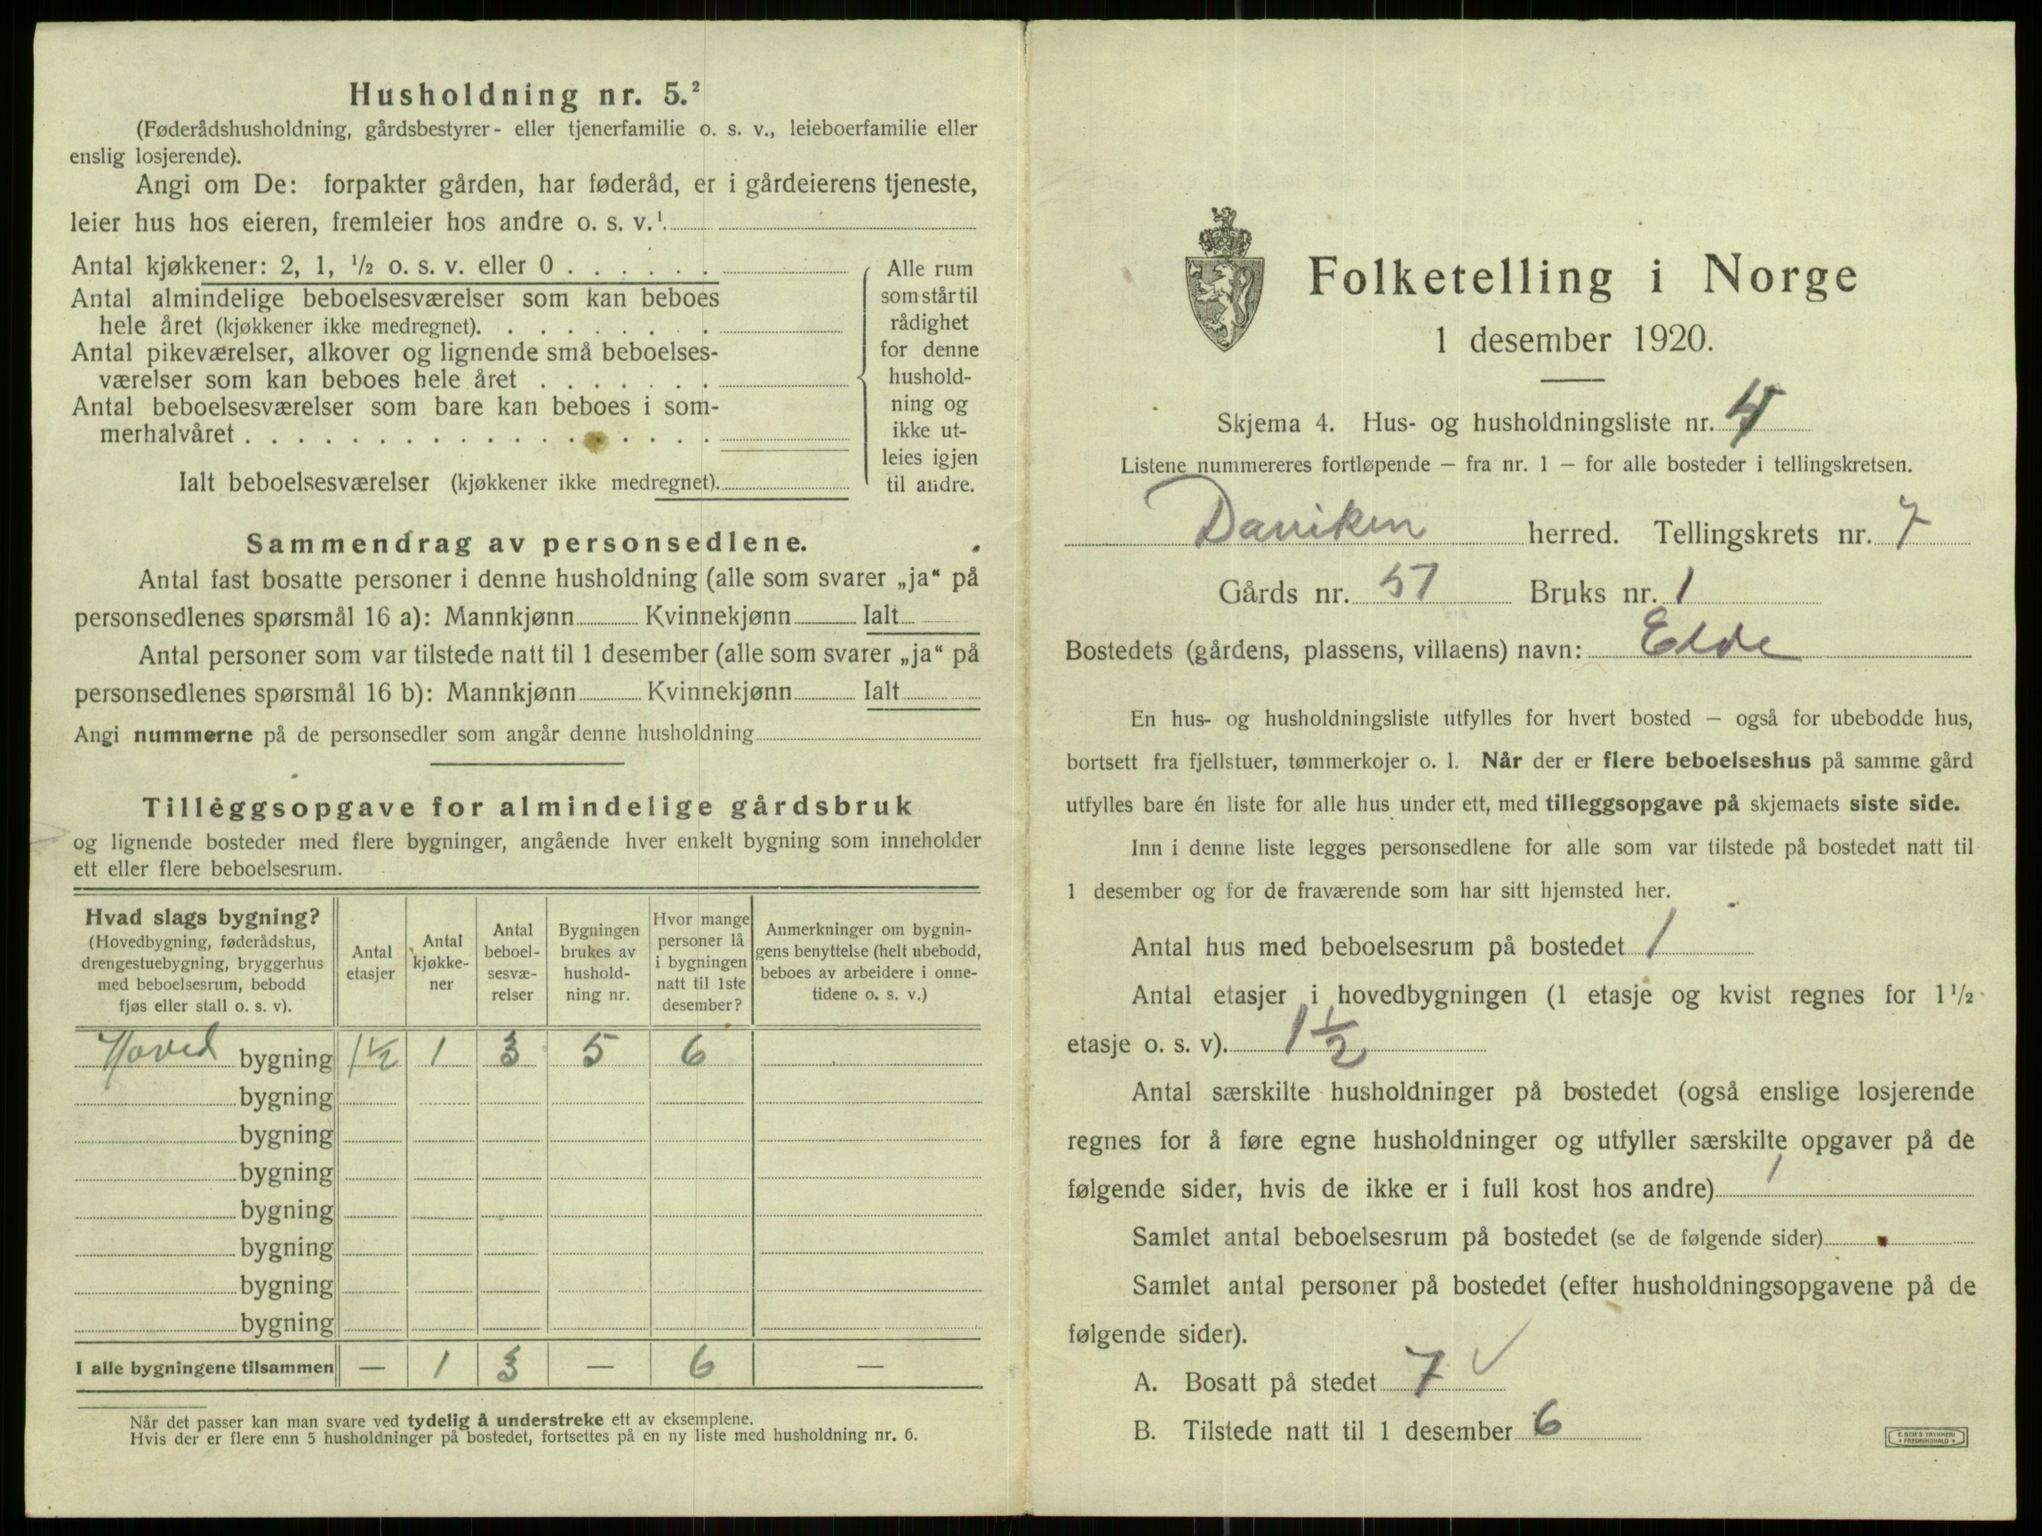 Husholdning nr. 5.²
(Føderådshusholdning, gårdsbestyrer- eller tjenerfamilie o. s. v., leieboerfamilie eller
enslig losjerende).
Angi om De: forpakter gården, har føderåd, er i gårdeierens tjeneste,
leier hus hos eieren, fremleier hos andre o. s. v.¹.
Antal kjøkkener: 2, 1, ¹/₂ o. s. v. eller 0 . . . . . .
Antal almindelige beboelsesværelser som kan beboes
hele året (kjøkkener ikke medregnet). . . . . . . . .
Antal pikeværelser, alkover og lignende små beboelses-
værelser som kan beboes hele året . . . . . . .
Antal beboelsesværelser som bare kan beboes i som-
merhalvåret . . . . . . . . . . . . . . . . . .
Ialt beboelsesværelser (kjøkkener ikke medregnet).
Alle rum
som står til
rådighet
for denne
hushold-
ning og
ikke ut-
leies igjen
til andre.
Sammendrag av personsedlene.
Antal fast bosatte personer i denne husholdning (alle som svarer „ja“ på
personsedlenes spørsmål 16 a): Mannkjønn Kvinnekjønn Ialt
Antal personer som var tilstede natt til 1 desember (alle som svarer „ja“ på
personsedlenes spørsmål 16 b): Mannkjønn Kvinnekjønn Ialt
Angi nummerne på de personsedler som angår denne husholdning
Tilleggsopgave for almindelige gårdsbruk
og lignende bosteder med flere bygninger, angående hver enkelt bygning som inneholder
ett eller flere beboelsesrum.
Hvad slags bygning?
(Hovedbygning, føderådshus,
drengestuebygning, bryggerhus
med beboelsesrum, bebodd
fjøs eller stall o. s. v).
Antal
etasjer
Antal
kjøkke-
ner
Antal
beboel-
sesvæ-
relser
Bygningen
brukes av
hushold-
ning nr.
Hvor mange
personer lå
i bygningen
natt til 1ste
desember?
Anmerkninger om bygnin-
gens benyttelse (helt ubebodd,
beboes av arbeidere i onne-
tidene o. s. v.)
Hoved bygning 1½ 1 3 5 6
bygning
bygning
bygning
bygning
bygning
bygning
bygning
I alle bygningene tilsammen — 1 3 — 6 —
Når det passer kan man svare ved tydelig å understreke ett av eksemplene.
Hvis der er flere enn 5 husholdninger på bostedet, fortsettes på en ny liste med husholdning nr. 6.
Folketelling i Norge
1 desember 1920.
Skjema 4. Hus- og husholdningsliste nr. 4
Listene nummereres fortløpende – fra nr. 1 – for alle bosteder i tellingskretsen.
Daviken herred. Tellingskrets nr. 7
Gårds nr. 57 Bruks nr. 1
Bostedets (gårdens, plassens, villaens) navn: Elde
En hus- og husholdningsliste utfylles for hvert bosted – også for ubebodde hus,
bortsett fra fjellstuer, tømmerkojer o. l. Når der er flere beboelseshus på samme gård
utfylles bare én liste for alle hus under ett, med tilleggsopgave på skjemaets siste side.
Inn i denne liste legges personsedlene for alle som var tilstede på bostedet natt til
1 desember og for de fraværende som har sitt hjemsted her.
Antal hus med beboelsesrum på bostedet 1
Antal etasjer i hovedbygningen (1 etasje og kvist regnes for 1 ¹/₂
etasje o. s. v). 1½
Antal særskilte husholdninger på bostedet (også enslige losjerende
regnes for å føre egne husholdninger og utfyller særskilte opgaver på de
følgende sider, hvis de ikke er i full kost hos andre) 1
Samlet antal beboelsesrum på bostedet (se de følgende sider)
Samlet antal personer på bostedet (efter husholdningsopgavene på de
følgende sider).
A. Bosatt på stedet 7 ✓
B. Tilstede natt til 1 desember 6
E. SEM'S TRYKKERI
FREDRIKSHALD